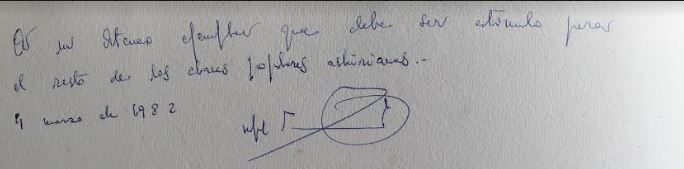 Es un Ateneo ejemplar que debe ser estímulo para
el resto de las clases populares asturianas.-
4 marzo de 1982